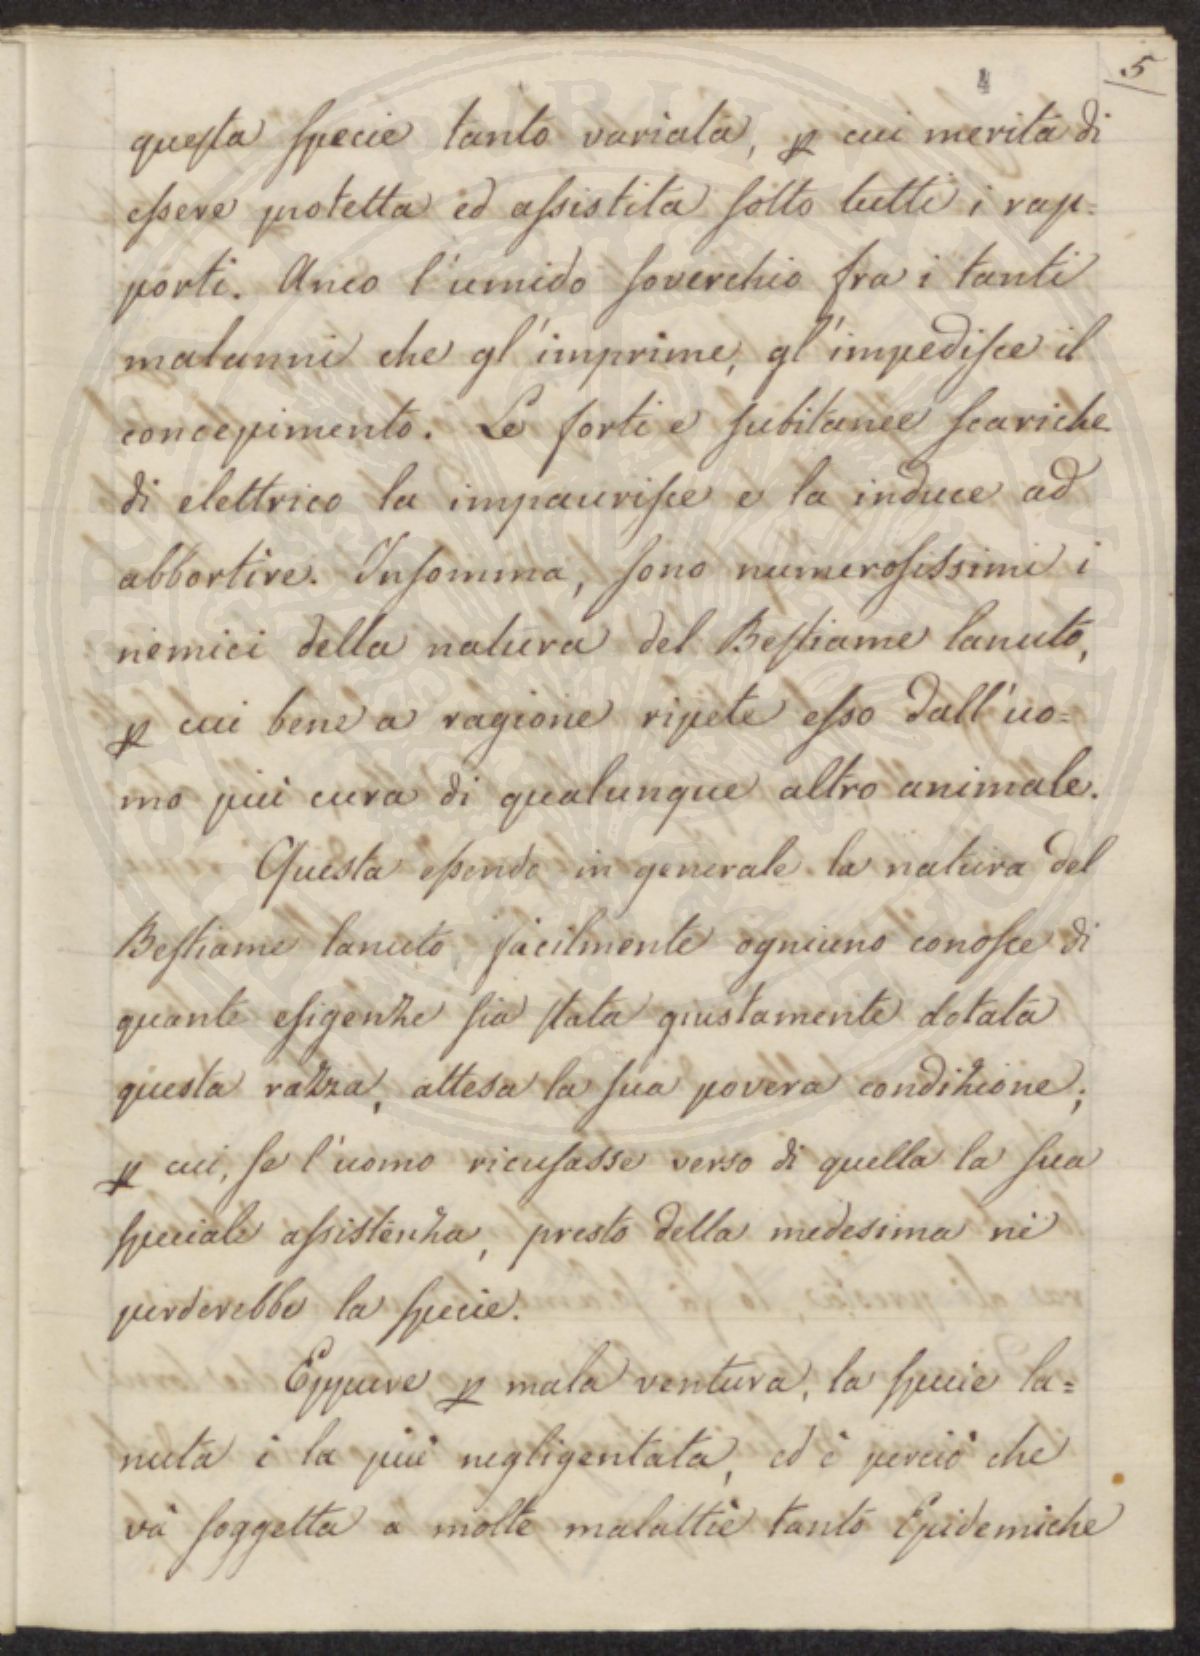 4
5
questa specie tanto variata, p cui merita di
essere protetta ed assistita sotto tutti i rap=
porti. Anco l'umido soverchio fra i tanti
malanni che gl'imprime, gl'impedisce il
concepimento. Le forti e subitanee scariche
di elettrico la impaurisce e la induce ad
abbortire. Insomma, sono numerosissimi i
nemici della natura del Bestiame lanuto,
p cui bene a ragione ripete esso dall'uo=
mo più cura di qualunque altro animale.
Questa essendo in generale la natura del
Bestiame lanuto, facilmente ogniuno conosce di
quante esigenze sia stata giustamente dotata
questa razza, attesa la sua povera condizione;
p cui, se l'uomo ricusasse verso di quella la sua
speciale assistenza, presto della medesima ne
perderebbe la specie.
Eppure p mala ventura, la specie la=
nuta è la più negligentata, ed è perciò che
và soggetta a molte malattie tanto Epidemiche